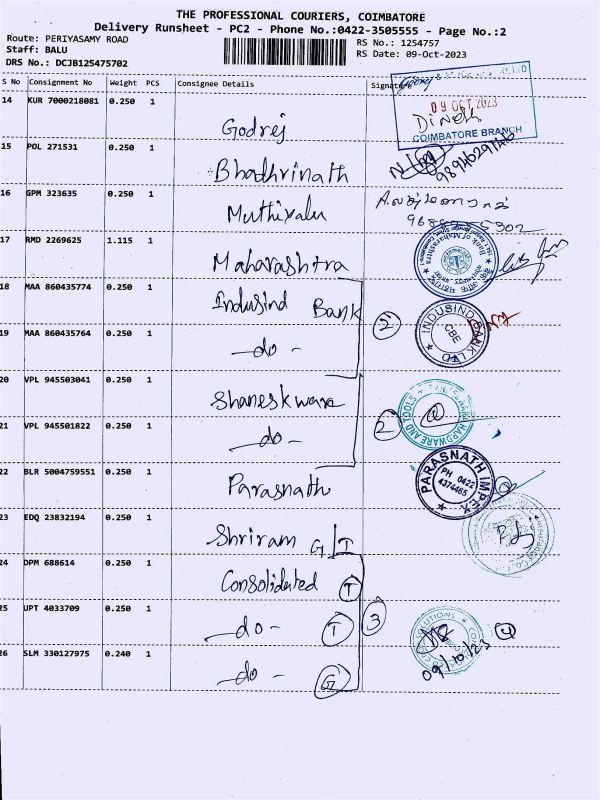 THE PROFESSIONAL COURIERS, COIMBATORE
Delivery Runsheet - PC2 - Phone No.:0422-3505555 - Page No.:2
Route: PERIYASAMY ROAD
RS No.: 1254757
Staff: BALU
RS Date: 09-Oct-2023
DRS No.: DCJB125475702
S No Consignment No Weight PCS Consignee Details Signature
09 OCT 2023
Dinesh
COIMBATORE BRANCH
14 KUR 7000218081 0.250 1 Godrej
15 POL 271531 0.250 1 Bhadhrinath
16 GPM 323635 0.250 1 Muthivalu
17 RMD 2269625 1.115 1 Maharashtra
Bank of Maharashtra
18 MAA 860435774 0.250 1 Indusind Bank 2
INDUSIND BANK LTD
CBE
19 MAA 860435764 0.250 1 -do-
20 VPL 945503041 0.250 1 Shaneskwara
HARDWARE AND TOOLS
21 VPL 945501822 0.250 1 -do- 2
22 BLR 5004759551 0.250 1 Parasnath
PARASNATH IMPEX
PH 0422
4374465
23 EDQ 23832194 0.250 1 Shriram G/T
24 DPM 688614 0.250 1 Consolidated T
25 UPT 4033709 0.250 1 -do- T 3
SOLUTIONS
09/10/23
26 SLM 330127975 0.240 1 -do- G